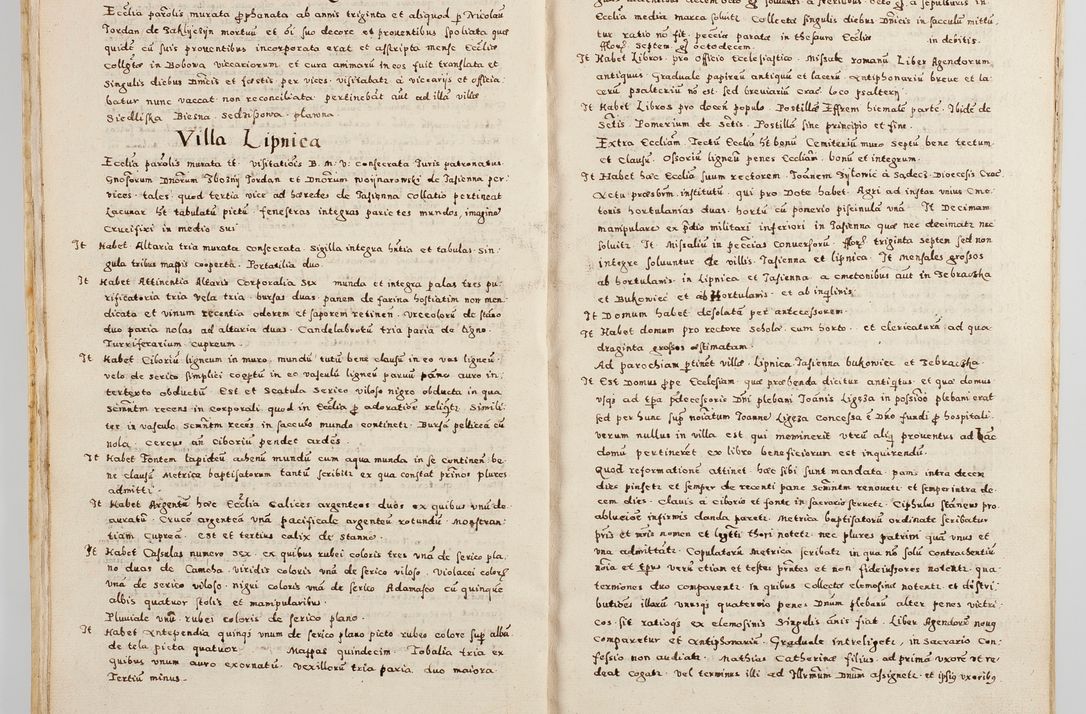 Ecclia parolis murata pphanata ab annis triginta et aliquod p Nicolau
Jordan de Zakliczyn mortuu et oi suo decore et prouentibus spoliata qua
quide cu suis prouentibus incorporata erat et asscripta mense Ecclie
Collgte in Bobova viccariorum et cura animaru in eos fuit translata et
Singulis diebus Dnicis et festis per vices visitabatr a viccarijs et officia
batur nunc vaccat non reconciliata pertinebat aut ad illa villa
Siedliska Biesna Sedzisowa plawna
Villa Lipnica
Ecclia parolis murata tt visitatiois B. M. V. consecrata Iuris patronatus
Gnosorum Dnorum Jordan et Dnorum Woynarowski de Jasienna per
vices taler quod tertia vice ad haeredes de Jasienna collatio pertineat
Lacunar ht tabulatu pictu fenestras integras parietes mundos, imagine
Crucifixi in medio sui
It Habet Altaria tria murata consecrata Sigilla integra hntia et tabulas sin
gula tribus mappis cooperta Portatilia duo
It Habet Attinentia Altaris Corporalia Sex munda et integra palas tres pu
rificatoria tria vela tria bursas duas panem de farina hostiatim non men
dicata et vinum recentia odorem et saporem retinen Vrceoloru de stano
duo paria nolas ad altaria duas Candelabrotu tria paria de ligno
Turriferarium cupreum
It Habet Ciboriu ligneum in muro mundu tutu bene clausu in eo vas ligneu
velo de serico simplici coeptu in eo vasculu ligneu paruu pano auro in
tertexto obductu Est et Scatula Serico viloso nigro obducta in qua
Semntm recens in corporali quod in Ecclia p adoratioe relintr Simili
ter in vasculo Semntm reces in sacculo mundo continetr Bursa pelticea cu
nola Cereus an Ciboriu pendet ardes
It Habet Fontem lapideu ahenu mundu cum aqua munda in se continen be
ne clausu Metrica baptisatorum tantu scribitr ex qua constat prinos plures
admitti
It Habet Argenta haec Ecclia Calices argenteos duos ex quibus unu de
auratu Cruce argentea una pacificale argenteu rotundu Monstran
tiam Cuprea est et tertius calix de stanno
It Habet Cassulas numero sex ex quibus rubei coloris tres una de serico pla
no duas de Camcha viridis coloris una de serico viloso Violacei colors
una de serico viloso nigri coloris una de serico Adamasco cu quinque
albis quatuor stolis et manipularibus
Pluviale unu rubei coloris de serico plano
It Habet Antependia quinqs unum de serico plano picto rubeo colore sup alba
de tela picta quatuor Mappas quindecim Tobalia tria ex
quibus unum auro exornatu vexilloru tria paria duo maiora
Tertiu minus
Ecclia media marca soluitr Collecta singulis diebus Dnicis in sacculu mittu
tur ratio no fit peccia parata in thesauro Ecclie in debitis
septem octodecem
It Habet Libros pro officio ecclesiastico Missale romanu Liber Agendorum
antiquus Graduale papireu antiquu et laceru Antiphonariu breue et la
ceru psalteriu no est sed breuiariu Crac loco psalterij
It Habet Libros pro docen populo Postilla Effrem hiemale parte Ibide de
Sctis Pomerium de Sctis Postilla sine principio et fine
Extra Eccliam Tectu Ecclia ht bonu Cemiteriu muro septu bene tectum
et clausu Ossoriu ligneu penes Eccliam bonu et integrum
It Habet haec Ecclia suum rectorem Joannem a Sadecz Dioecesis Crac
Actu praesbrm institutu qui pro Dote habet Agri ad instar unius Cme
toris hortulanias duas hortu cu pomerio piscinula una It Decimam
manipulare ex pdio militari inferiori in Jasienna quae nec decimatr nec
soluitr It Missaliu in peccias Conversoru triginta septem sed non
integre soluuntur de villis Jasienna et lipnica It Mensales grossos
ab hortulanis in Lipnica et Jasienna a cmetonibus aut in Zebraczka
et Bukowiec et ab Hortulanis et ab inqlinis
It Domum habet desolata per antecessorem
It Habet domum pro rectore Schola cum horto et clericatura ad qua
draginta grossos estimatam
Ad parochiam ptinet villae Lipnica Jasienna bukowiec et Zebraczka
It Est Domus ppe Ecclesiam quae prebenda dicitur antiqtus et qua domus
usqs ad tpa pdecessoris Dni plebani Joanis Ligeza in possioe plebani erat
sed per hunc sup noiatum Joanne Ligeza Concessa e Dno fundi p hospitali
verum nullus in villa est qui meminerit utru aliq prouentus ad hac
domu pertineret ex libro beneficiorum est inquirendu
Quod reformatione attinet haec sibi sunt mandata pani intra decem
dies pinsetr et semper de recenti pane Semntm renouetr et semper intra de
cem dies Clauis a ciborio et fonte in sacrario serretr Ciphulus staneus pro
ablucioe infirmis danda paretr Metrica baptisatoru ordinate scribatur
pris et mris nomen et legtti thori notetr nec plures patrini qua unus et
una admittatr Copulatoru Metrica scribatr in qua no solu contrahentiu
noia et tpus veru etiam et testes prntes et non fideiussores notentr qua
terniones duo comparentr in quibus Collecta elemosina notentr et distri
butioes illaru unusqs quaternio penes Dnum plebanu alter penes vitri
cos sit ratioqs ex elemosinis Singulis anis fiat Liber Agendoru nouq
comparetur et Antiphonaris Graduale introligetr, in sacrario Con
fessio non audiatr Mathias Catherinae filius ad prima uxore ut re
deat cogatr vel terminus illi ad Illrmum Dnum assignetr et ipsiq uxoribq